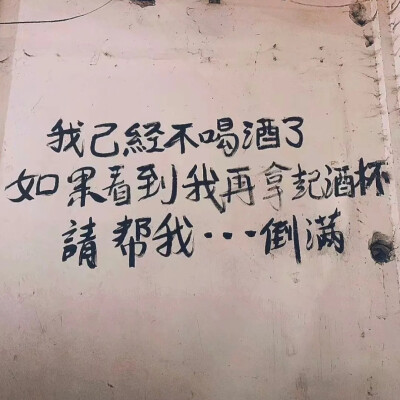 我己経不喝酒了
如果看到我再拿起酒杯
請帮我・・・倒滿